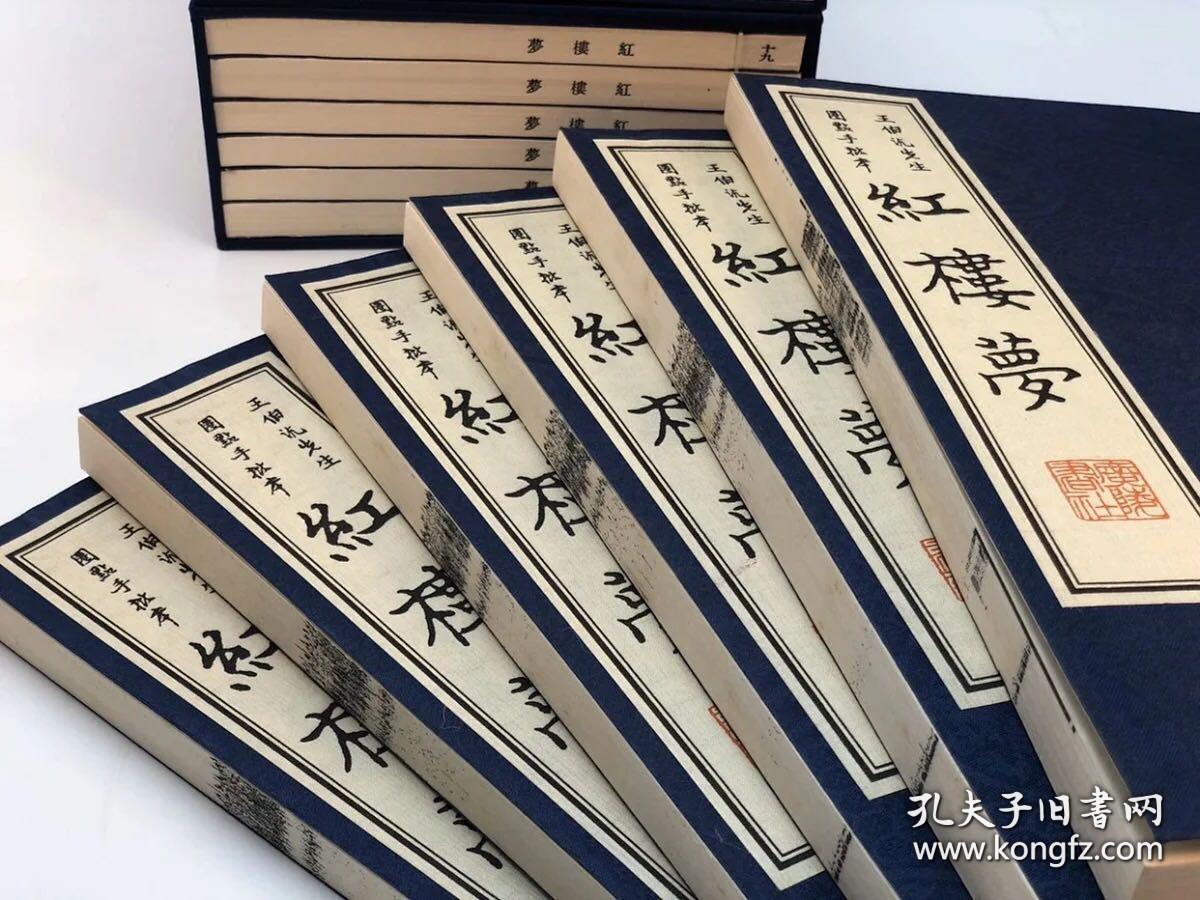 紅樓夢 十九
紅樓夢
紅樓夢
夢
夢
王伯沆先生
圈點手批本
紅樓夢
廣陵書社
王伯沆先生
圈點手批本
紅樓夢
王伯沆先生
圈點手批本
紅樓
王伯沆
圈點手批本
紅樓
王伯沆先生
圈點手批本
紅樓
王伯沆先生
圈點手批本
紅樓
孔夫子旧书网
www.kongfz.com